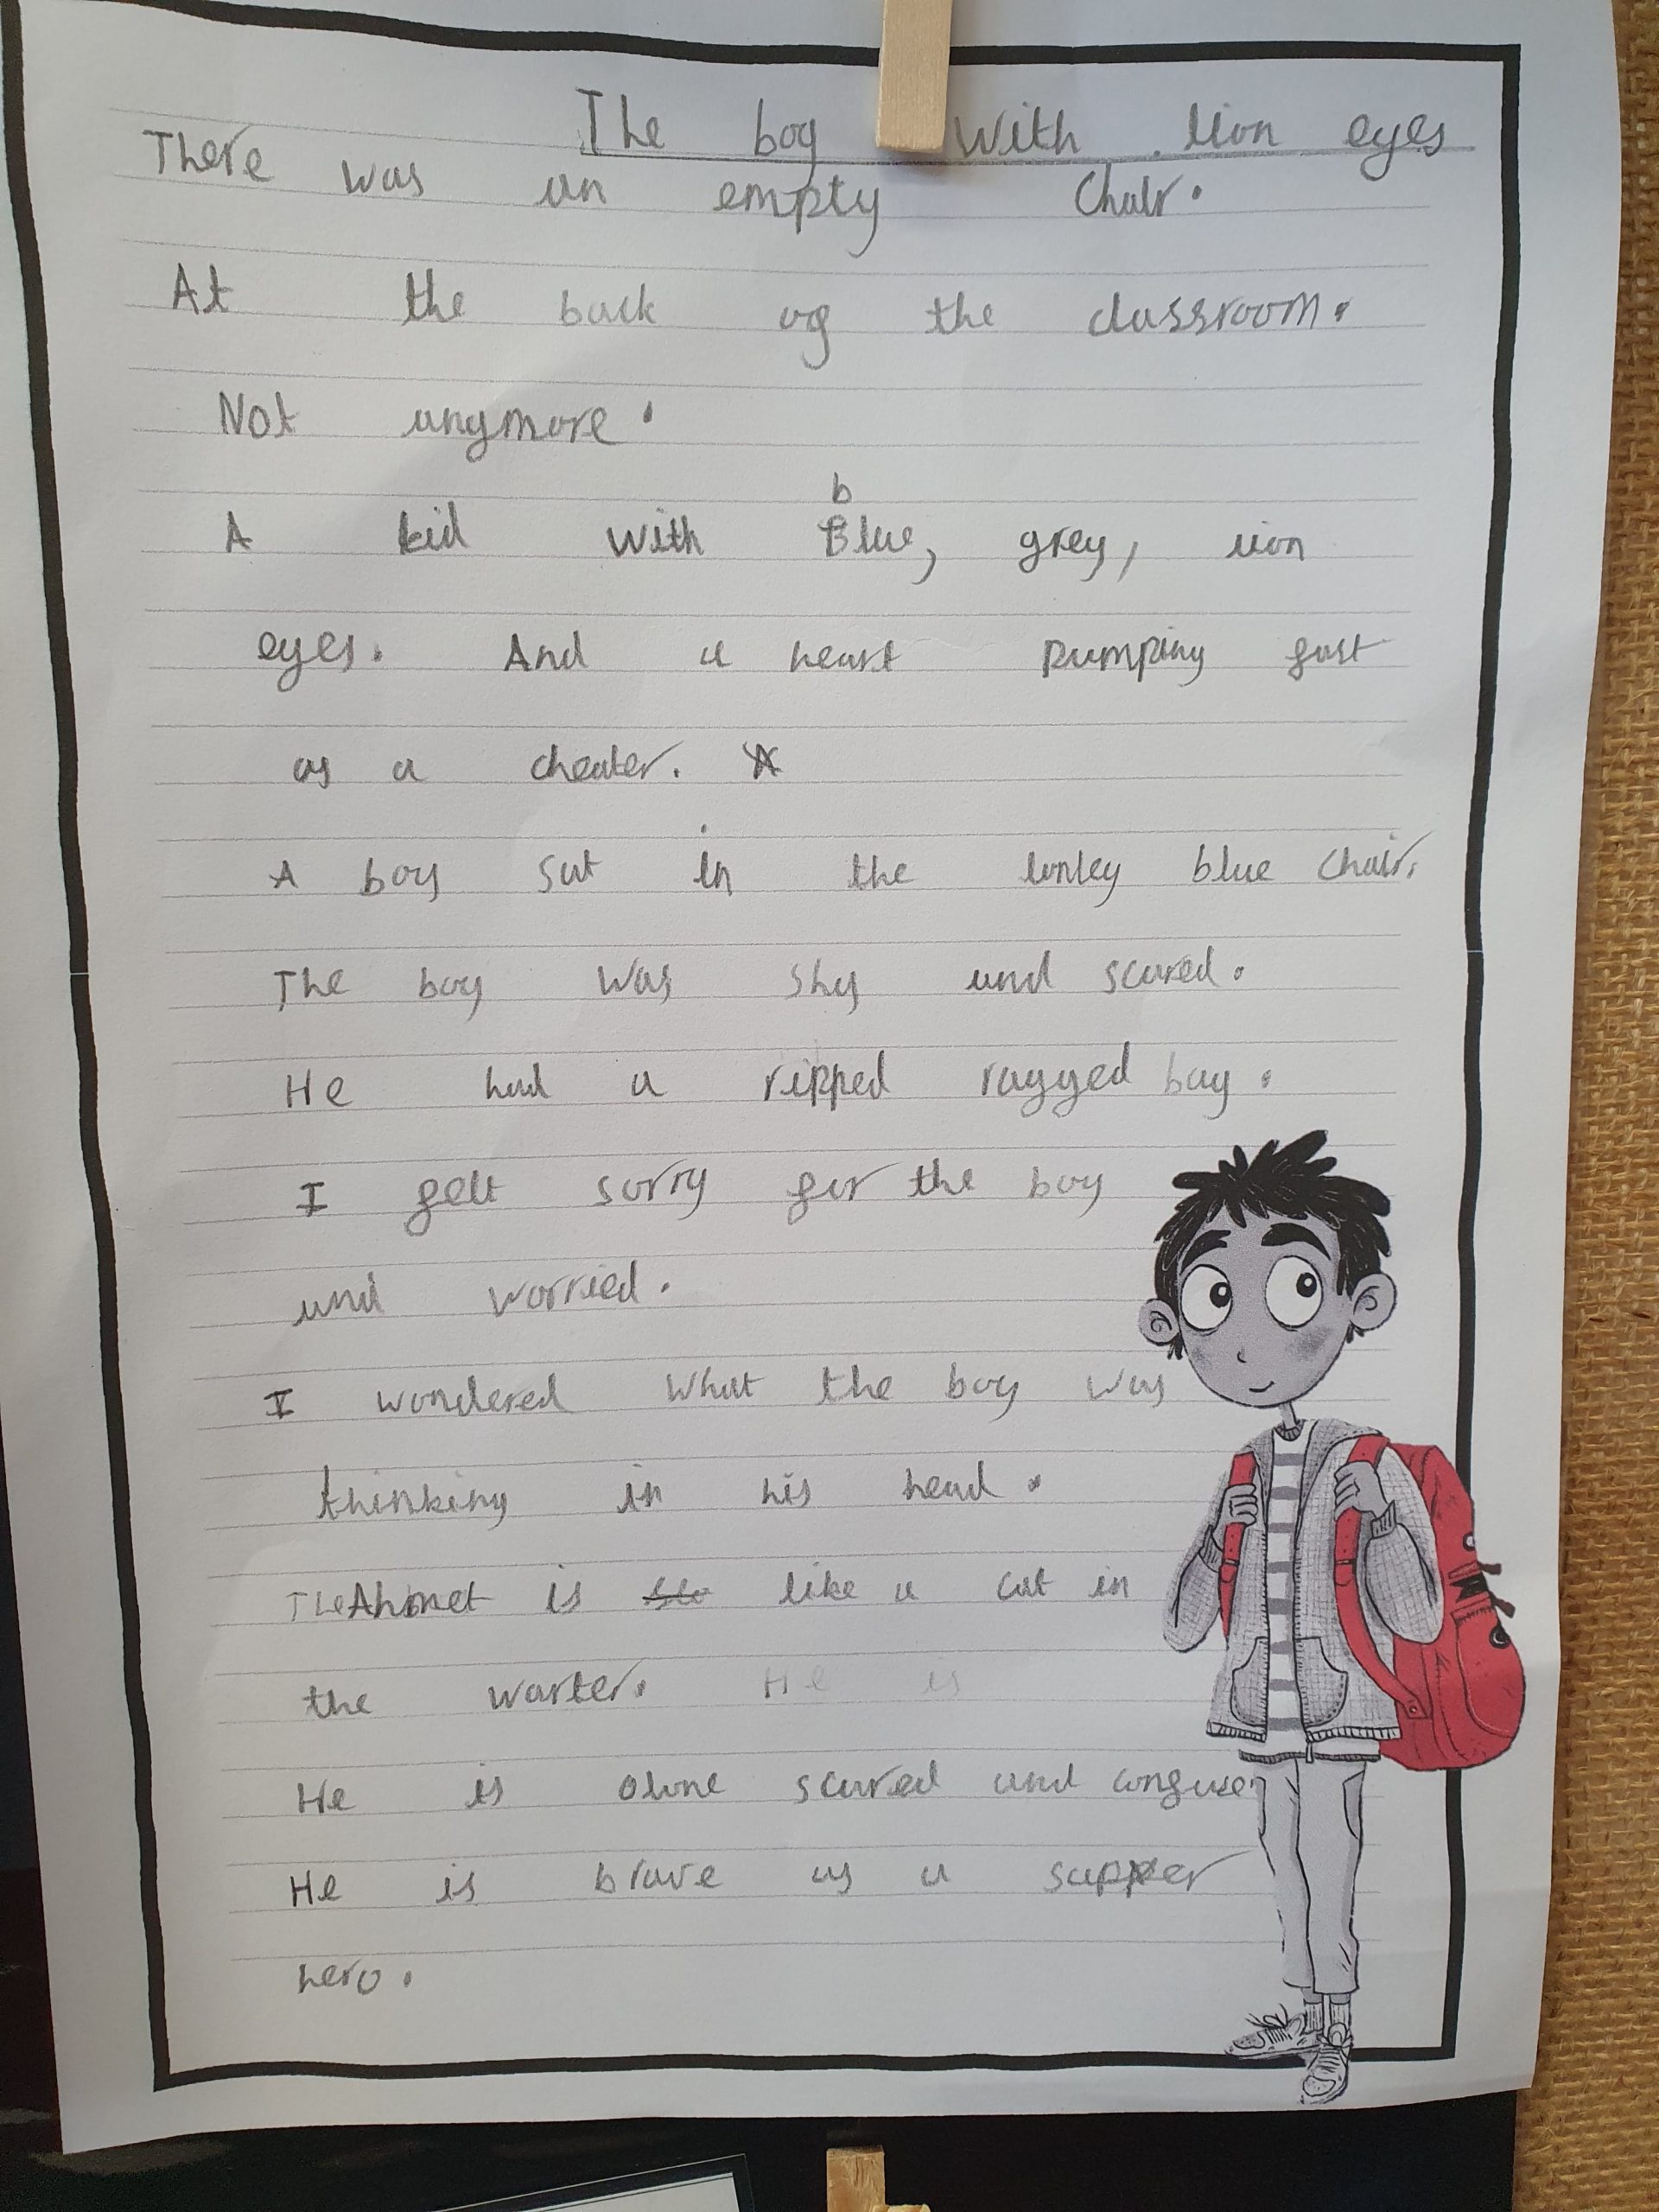 The boy With lion eyes
There was an empty Chair.
At the back of the classroom.
Not anymore.
A kid with blue, grey, lion
eyes. And a heart Pumping fast
as a cheater.
A boy sat in the lonley blue Chair.
The boy was shy and scared.
He had a ripped ragged bag.
I felt sorry for the boy
and worried.
I wondered what the boy was
thinking in his head.
Ahmet is like a cat in
the warter. He is
He is alone scared and confuse
He is brave as a supper
hero.